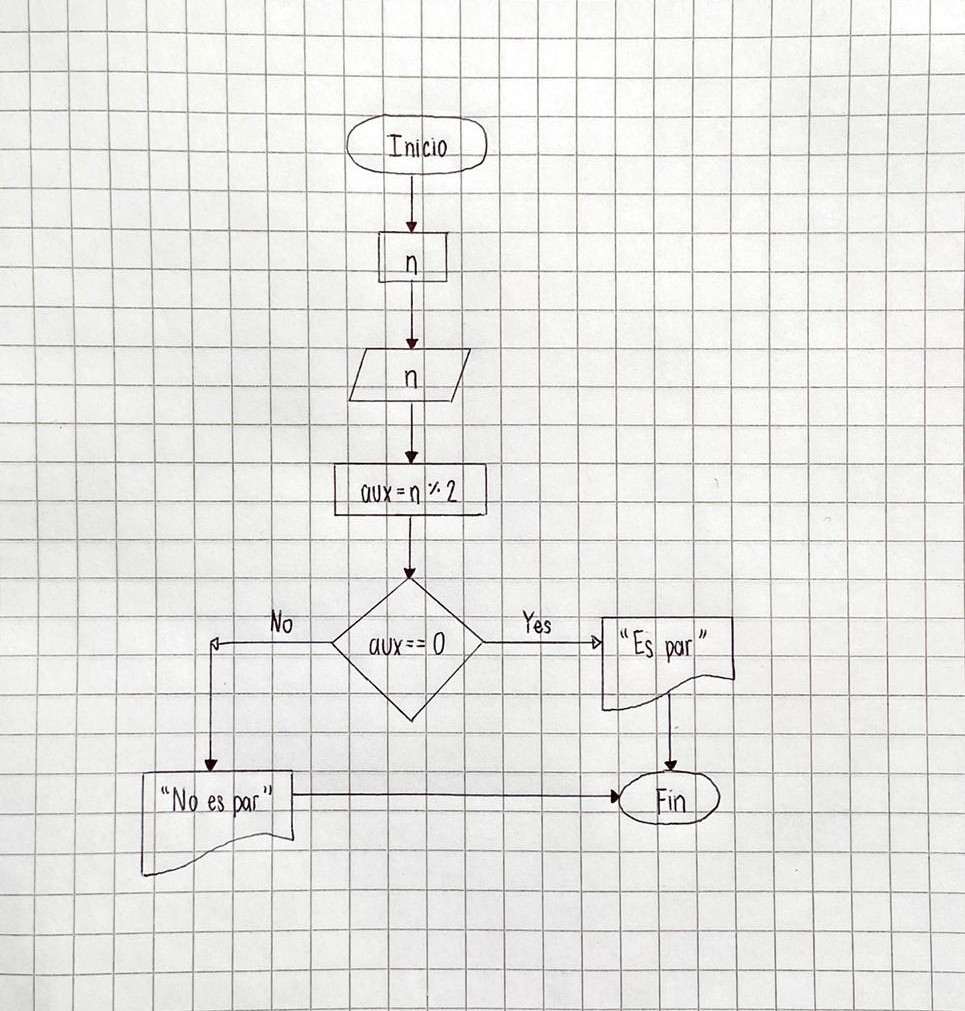 Inicio
n
n
aux=n%2
aux==0
No
Yes
"Es par"
"No es par"
Fin